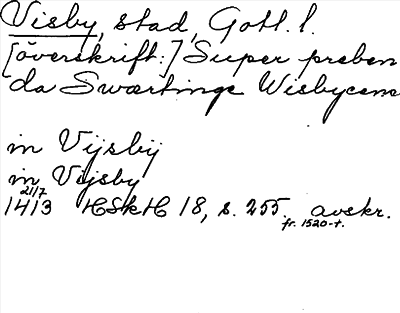 Visby, stad, Gotl. l.
[överskrift:] Super preben
da Swærtinge Wisbycens
in Vijsby
in Vijsby
21/7
1413 HSkH 18, s. 255. avskr.
fr. 1520-t.